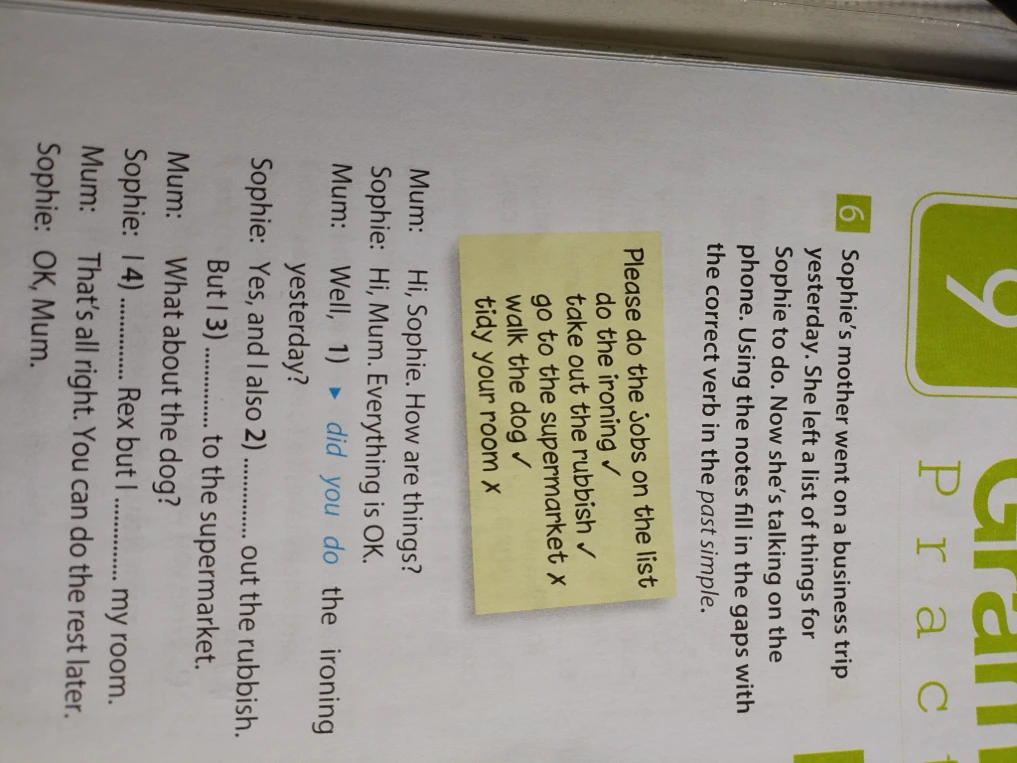 9
P r a c
6 Sophie's mother went on a business trip
yesterday. She left a list of things for
Sophie to do. Now she's talking on the
phone. Using the notes fill in the gaps with
the correct verb in the past simple.
Please do the jobs on the list
do the ironing ✓
take out the rubbish ✓
go to the supermarket X
walk the dog ✓
tidy your room X
Mum: Hi, Sophie. How are things?
Sophie: Hi, Mum. Everything is OK.
Mum: Well, 1) ▸ did you do the ironing
yesterday?
Sophie: Yes, and I also 2) .............. out the rubbish.
But I 3) .............. to the supermarket.
Mum: What about the dog?
Sophie: I 4) .............. Rex but I .............. my room.
Mum: That's all right. You can do the rest later.
Sophie: OK, Mum.